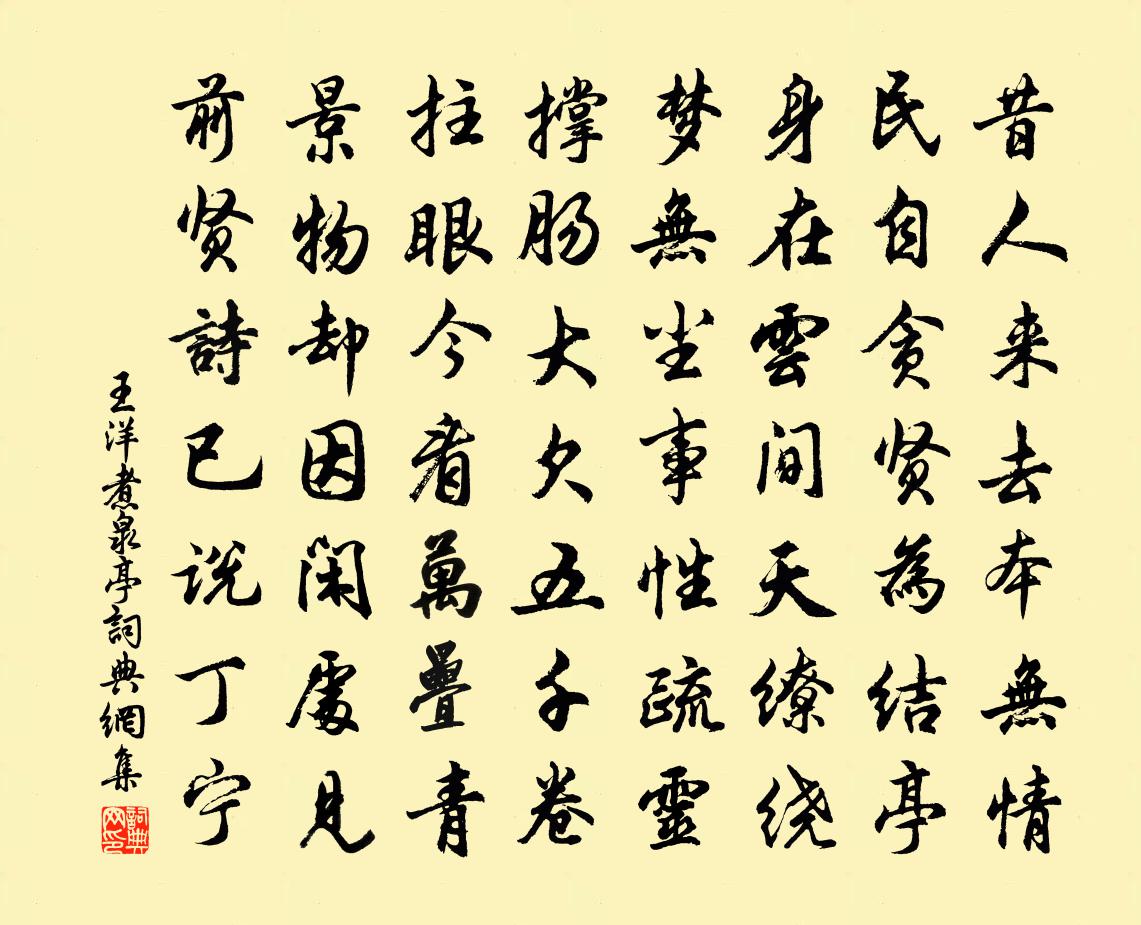 昔人来去本無情
民自贪贤為结亭
身在雲间天缭绕
梦無尘事性疏靈
撑肠大欠五千卷
拄眼今看萬疊青
景物却因闲處見
前贤詩已说丁宁
王洋煮泉亭詞典網集
詞典網印